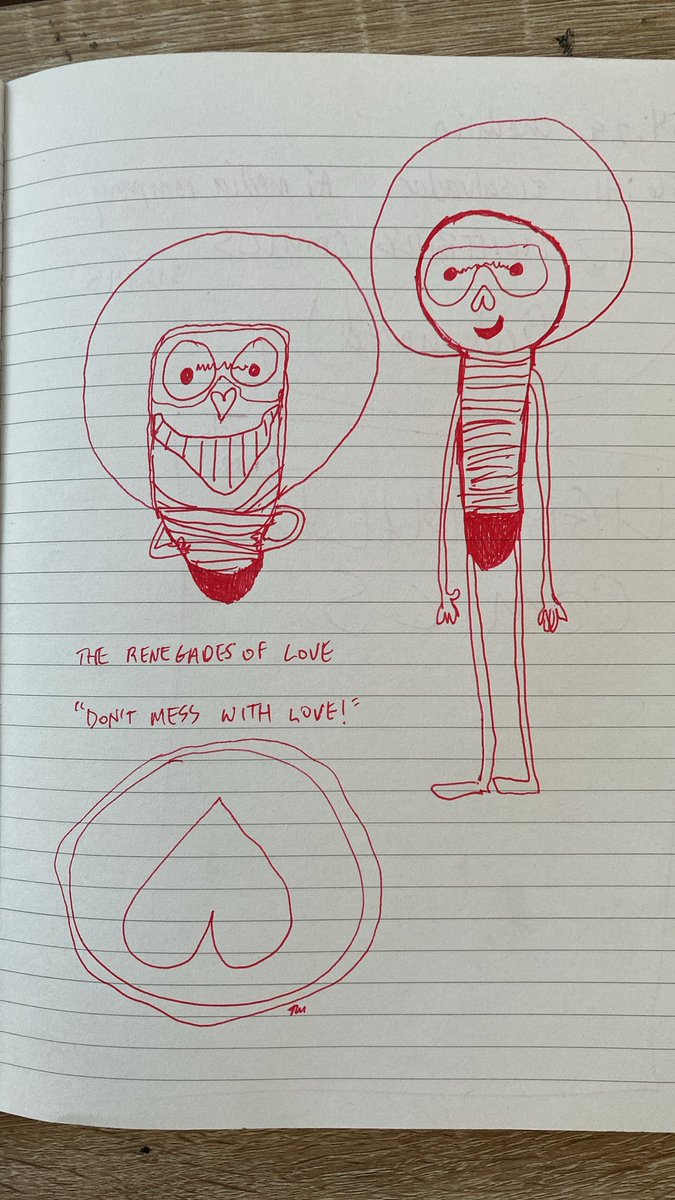 THE RENEGADES OF LOVE
"DON'T MESS WITH LOVE!"
TW